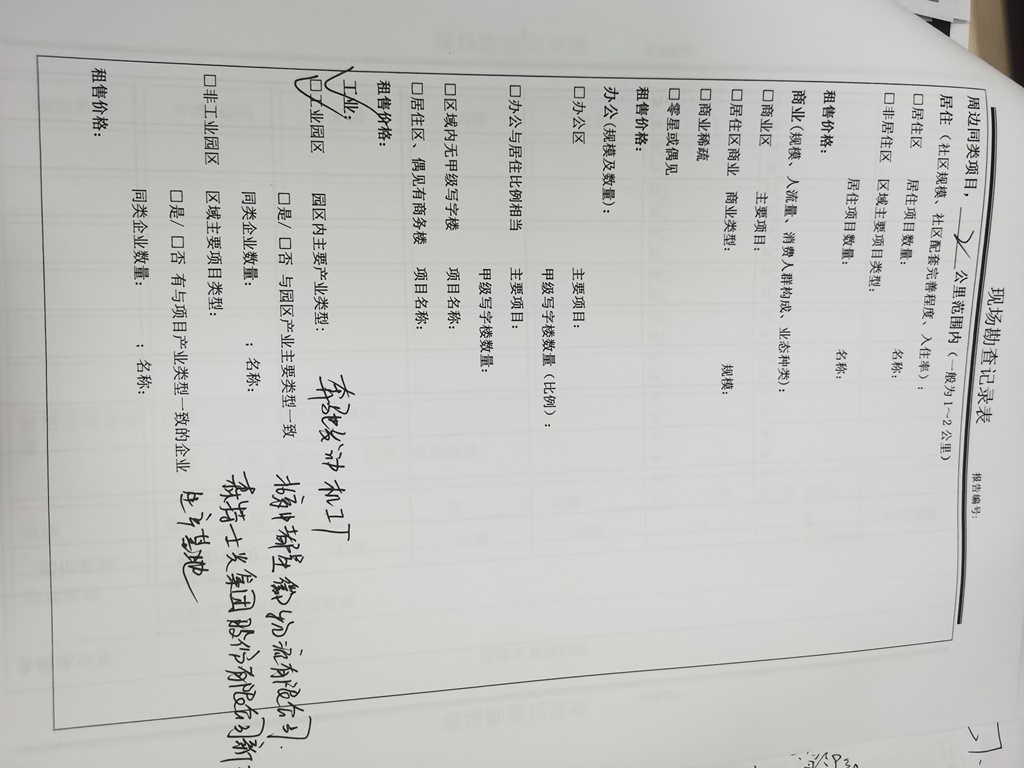 现场勘查记录表
报告编号:
周边同类项目，2公里范围内（一般为1~2公里）
居住（社区规模、社区配套完善程度、入住率）：
□居住区 居住项目数量： 名称：
□非居住区 区域主要项目类型：
居住项目数量： 名称：
租售价格：
商业（规模、人流量、消费人群构成、业态种类）：
□商业区 主要项目：
□居住区商业 商业类型： 规模：
□商业稀疏
□零星或偶见
租售价格：
办公（规模及数量）：
□办公区 主要项目：
甲级写字楼数量（比例）：
□办公与居住比例相当 主要项目：
甲级写字楼数量：
□区域内无甲级写字楼 项目名称：
□居住区、偶见有商务楼 项目名称：
租售价格：
工业：
□工业园区 园区内主要产业类型： 奔驰发动机工厂
□是/□否 与园区产业主要类型一致
同类企业数量： ；名称：
物流有限公司
森特士兴集团股份有限公司新
生产基地
□非工业园区 区域主要项目类型：
□是/□否 有与项目产业类型一致的企业
同类企业数量： ；名称：
租售价格：